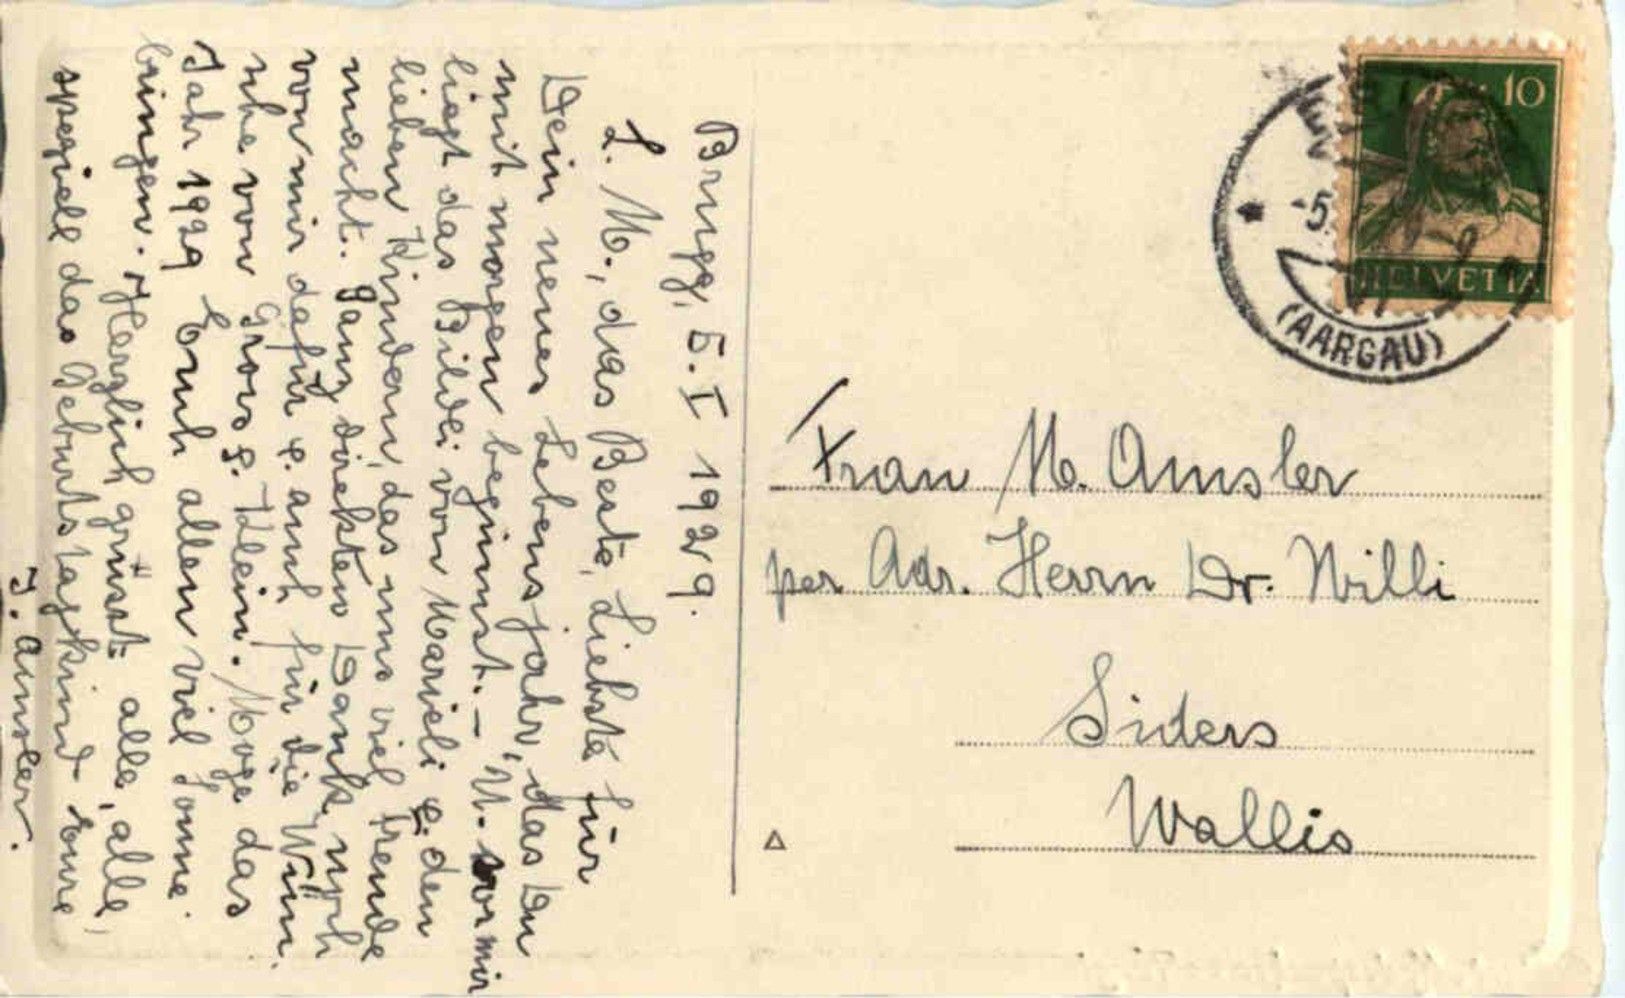 Brugg, 5. I 1929.
L. M., das Beste, Liebste für
Dein neues Lebensjahr, das Du
mit morgen beginnst. – U. vor mir
liegt das Bildli von Marieli & den
lieben Kindern, das uns viel Freude
macht. Ganz direkten Dank noch
von mir dafür & auch für die Wün-
sche von Gross & Klein. Möge das
Jahr 1929 Euch allen viel Sonne
bringen. Herzlich grüsst alle, alle,
speziell das Geburtstagskind Eure
J. Amsler.
10
HELVETIA
5.
(AARGAU)
Frau M. Amsler
per Adr. Herrn Dr. Willi
Siders
Wallis